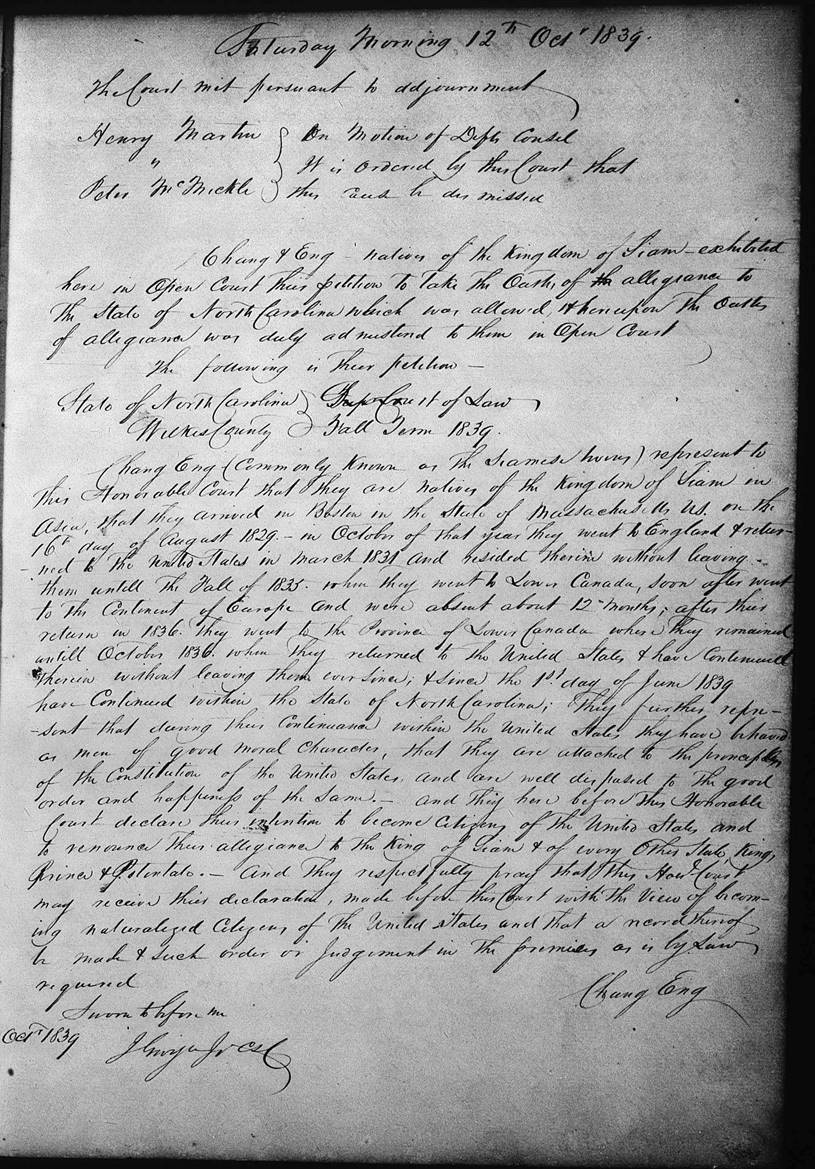 Saturday Morning 12th Octr 1839.
The Court met persuant to adjournment
Henry Martin } On Motion of Defts Consel
" } It is ordered by this Court that
Peter McMickle } this caus be dismissed
Chang & Eng - natives of the Kingdom of Siam - exhibited
here in Open Court their petition to Take the Oaths of th allegiance to
The State of North Carolina which was allowed, Whereupon the Oaths
of allegiance was duly admisterd to them in Open Court
The following is their petition -
State of North Carolina } Sup Court of Law
Wilkes County } Fall Term 1839.
Chang Eng (Commonly Known as the Siamese twins) represent to
this Honorable Court that they are natives of the Kingdom of Siam in
Asia, that they arrived in Boston in the State of Massachusetts U.S. on the
16th day of August 1829 - in October of that year they went to England & retur-
-ned to the United States in March 1831 and resided therein without leaving
them untill the Fall of 1835. when they went to Lower Canada, soon after went
to the Continent of Europe and were absent about 12 months; after their
return in 1836. they went to the Province of Lower Canada where they remained
untill October 1836. when they returned to the United States & have Continued
therein without leaving them ever since; & since the 1st day of June 1839
have Continued within the State of North Carolina; They further repre-
-sent that during their Continuance within the United States they have behaved
as men of good moral character, that they are attached to the
of the Constitution of the United States and are well disposed to the good
order and happiness of the same. - and they here before this Honorable
Court declare their intention to become Citizens of the United States and
to renounce their allegiance to the King of Siam & of every Other State, King,
Prince & Potentate. - And They respectfully pray that this Honl Court
may receive their declaration, made before this Court with the View of becom-
ing naturalized Citizens of the United States and that a record thereof
be made & such order or Judgement in the premises as is by Law
required
Chang Eng
Sworn to before me
Octr 1839